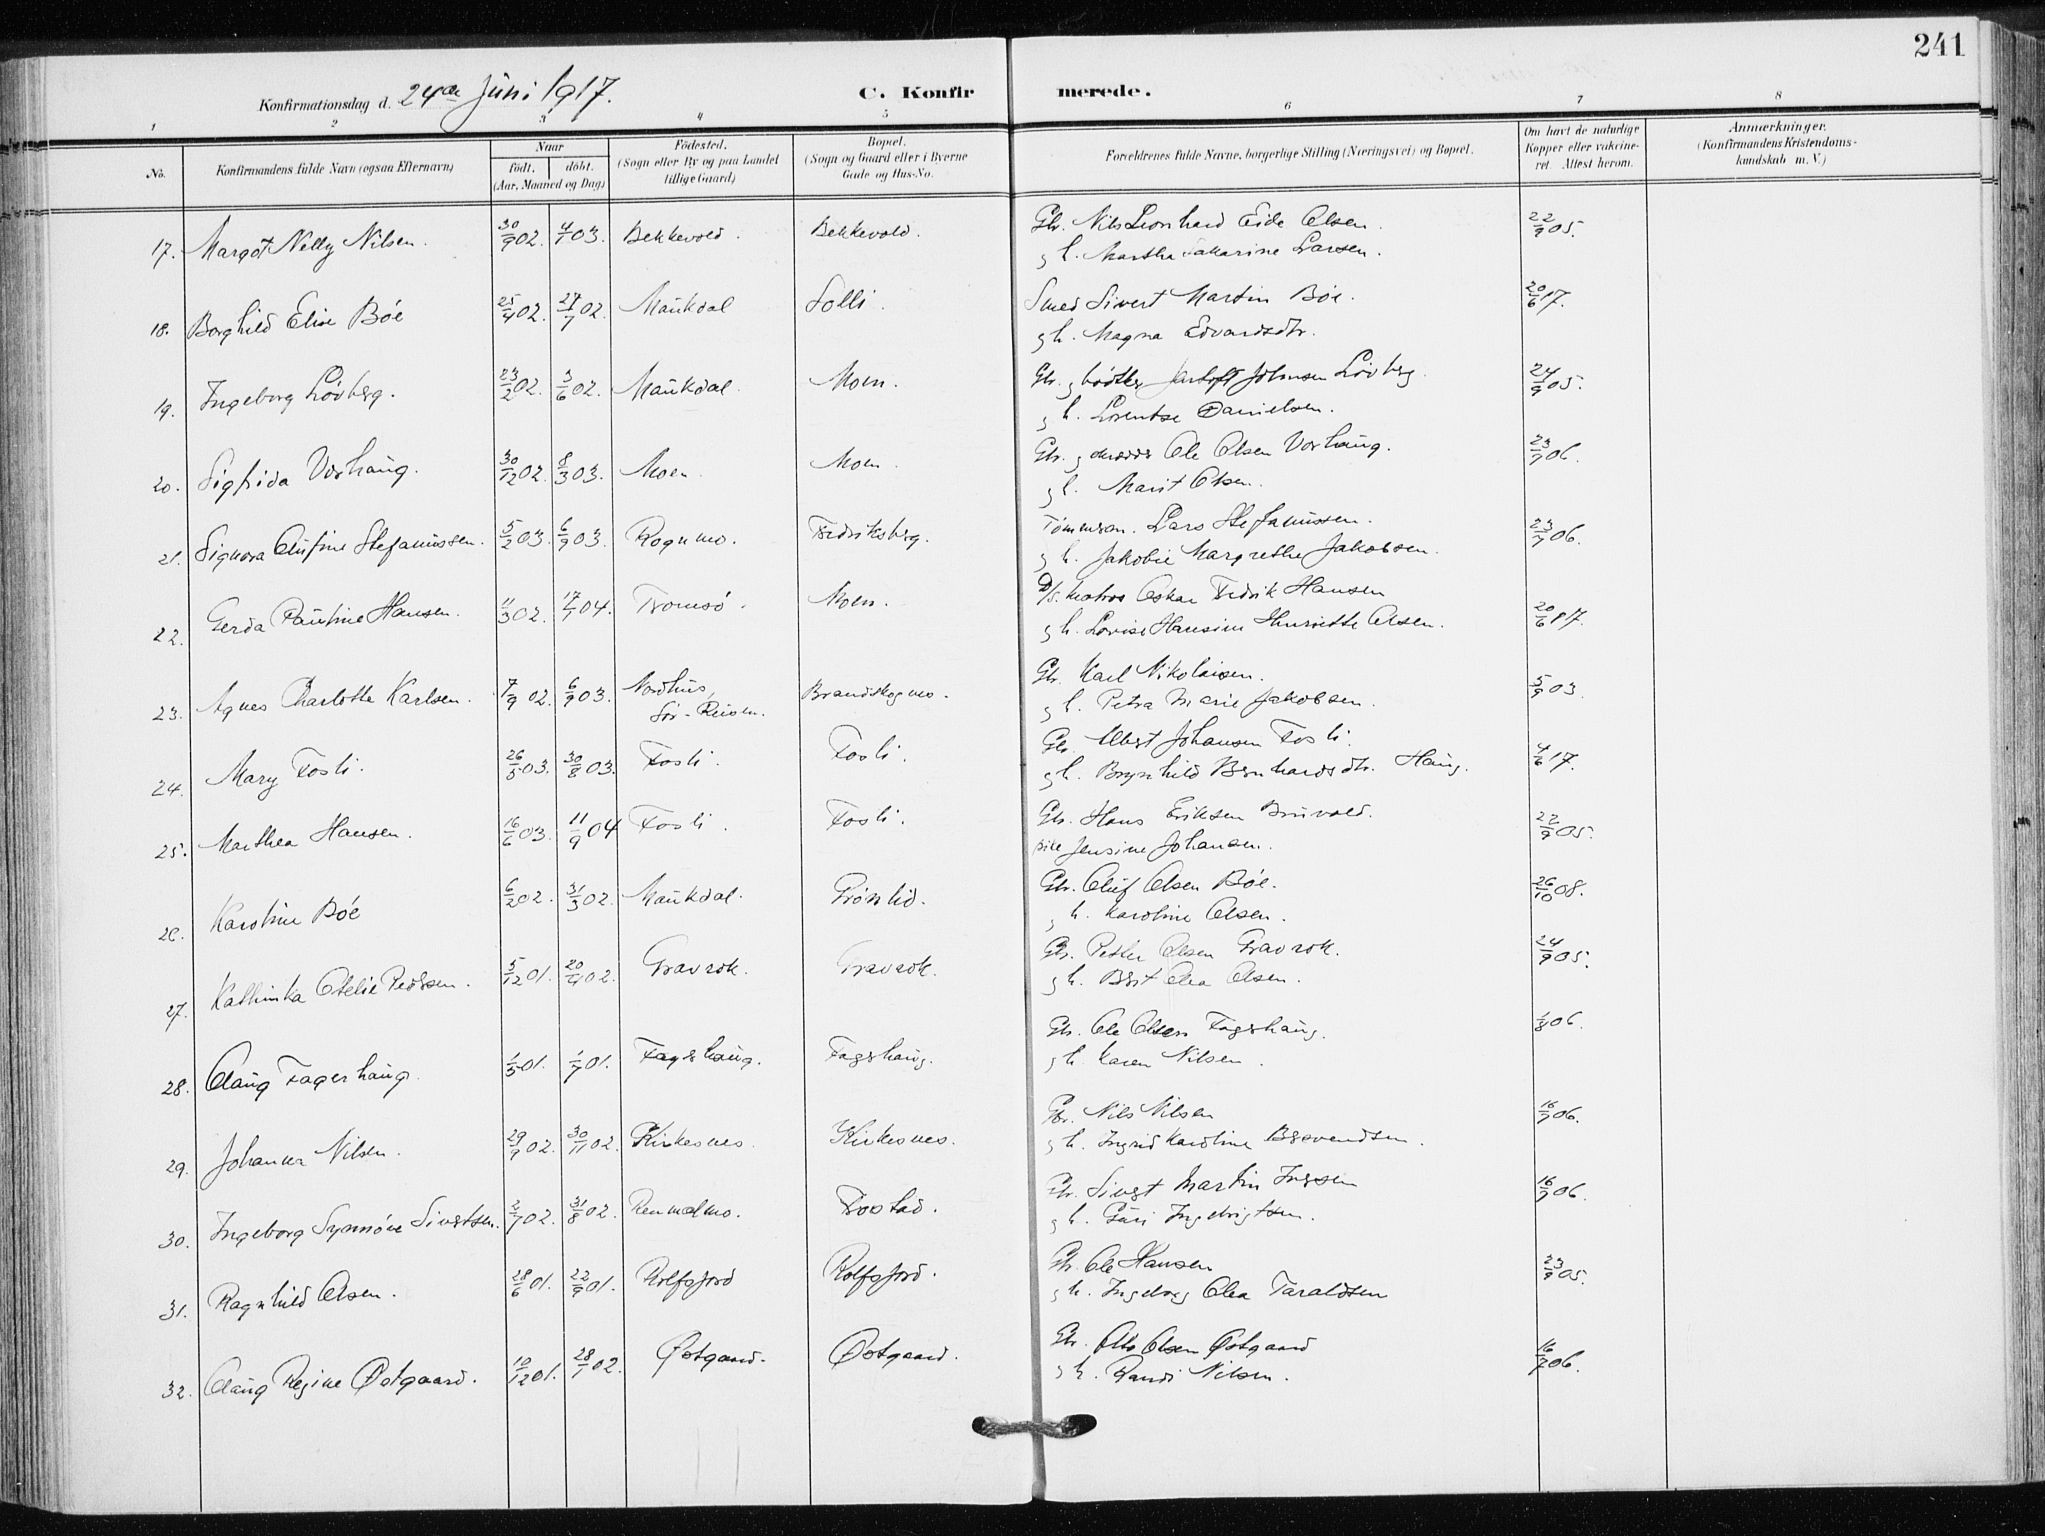 241
Konfirmationsdag d. 24de Juni 1917. C. Konfirmerede.
1 2 3 4 5 6 7 8
No. Konfirmandens fulde Navn (ogsaa Efternavn) Naar födt. döbt. (Aar, Maaned og Dag) Födested. (Sogn eller By og paa Landet tillige Gaard) Bopæl. (Sogn og Gaard eller i Byerne Gade og Hus-No. Forældrenes fulde Navne, borgerlige Stilling (Næringsvei) og Bopæl. Om havt de naturlige Kopper eller vakcineret. Attest herom. Anmærkninger. (Konfirmandens Kristendomskundskab m. V.)
17. Margot Nelly Nilsen. 30/9 02. 4/1 03. Bekkevold. Bekkevold. Gbr. Nils Leonhard Eide Olsen. 22/9 05.
g h. Martha Katharine Larsen.
18. Borghild Elise Böe 25/4 02. 27/7 02. Maukdal Solli. Smed Sivert Martin Böe. 20/6 17.
g h. Magna Edvardsdtr.
19. Ingeborg Lövberg. 23/2 02. 3/6 02. Maukdal. Moen. Gbr. g Johnsen Lövberg 24/9 05.
g h. Lorentse Danielsen.
20. Sigfrida Vorhaug. 30/12 02. 8/3 03. Moen. Moen. Gbr. g Ole Olsen Vorhaug. 23/7 06.
g h. Marit Olsen.
21. Signora Olufine Stefanussen. 5/2 03. 6/9 03. Rognmo. Fredriksberg. Tömmerm. Lars Stefanussen. 23/7 06.
g h. Jakobie Margrethe Jakobsen.
22. Gerda Pauline Hansen. 11/3 02. 17/1 04. Tromsö. Moen. D/S. Matros Oskar Fredrik Hansen 20/6 17.
g h. Lovise Hansine Henriette Olsen.
23. Agnes Charlotte Karlsen. 7/9 02. 6/9 03. Nordhus, Sör-Reisen. Brandskogmo. Gbr. Karl Nikolaisen. 5/9 03.
g h. Petra Marie Jakobsen.
24. Mary Fosli. 26/5 03. 30/8 03. Fosli. Fosli. Gbr. Albert Johansen Fosli. 4/6 17.
g h. Brynhild Bernhardsdtr. Haug.
25. Marthea Hansen. 16/6 03. 11/9 04 Fosli. Fosli. Gbr. Hans Eriksen Bruvold. 22/9 05.
Pike Jensine Johansen.
26. Karoline Böe 6/2 02. 31/3 02. Maukdal. Grönlid. Gbr. Oluf Olsen Böe. 26/10 08.
g h. Karoline Olsen.
27. Kathinka Otelie Pedersen. 5/12 01. 20/4 02. Gravrok. Gravrok. Gbr. Petter Olsen Gravrok. 24/9 05.
g h. Berit Olea Olsen.
28. Olaug Fagerhaug. 1/5 01. 1/7 01. Fagerhaug. Fagerhaug. Gbr. Ole Olsen Fagerhaug. 1/8 06.
g h. Karen Nilsen.
29. Johanna Nilsen. 29/9 02. 30/11 02. Kirkesnes. Kirkesnes. Gbr. Nils Nilsen 16/7 06.
g h. Ingrid Karoline Bersvendsen.
30. Ingeborg Synnöve Sivertsen. 2/7 02. 31/8 02. Renmelmo. Frostad. Gbr. Sivert Martin Ingersen 16/7 06.
g h. Guri Ingebrigtsen.
31. Ragnhild Olsen. 28/6 01. 22/9 01. Rolfsfjord Rolfsfjord. Gbr. Ole Hansen 23/9 05.
g h. Ingeborg Olea Taraldsen
32. Olaug Regine Östgaard. 10/12 01. 28/1 02. Östgaard. Östgaard. Gbr. Otto Olsen Östgaard 16/7 06.
g h. Randi Nilsen.